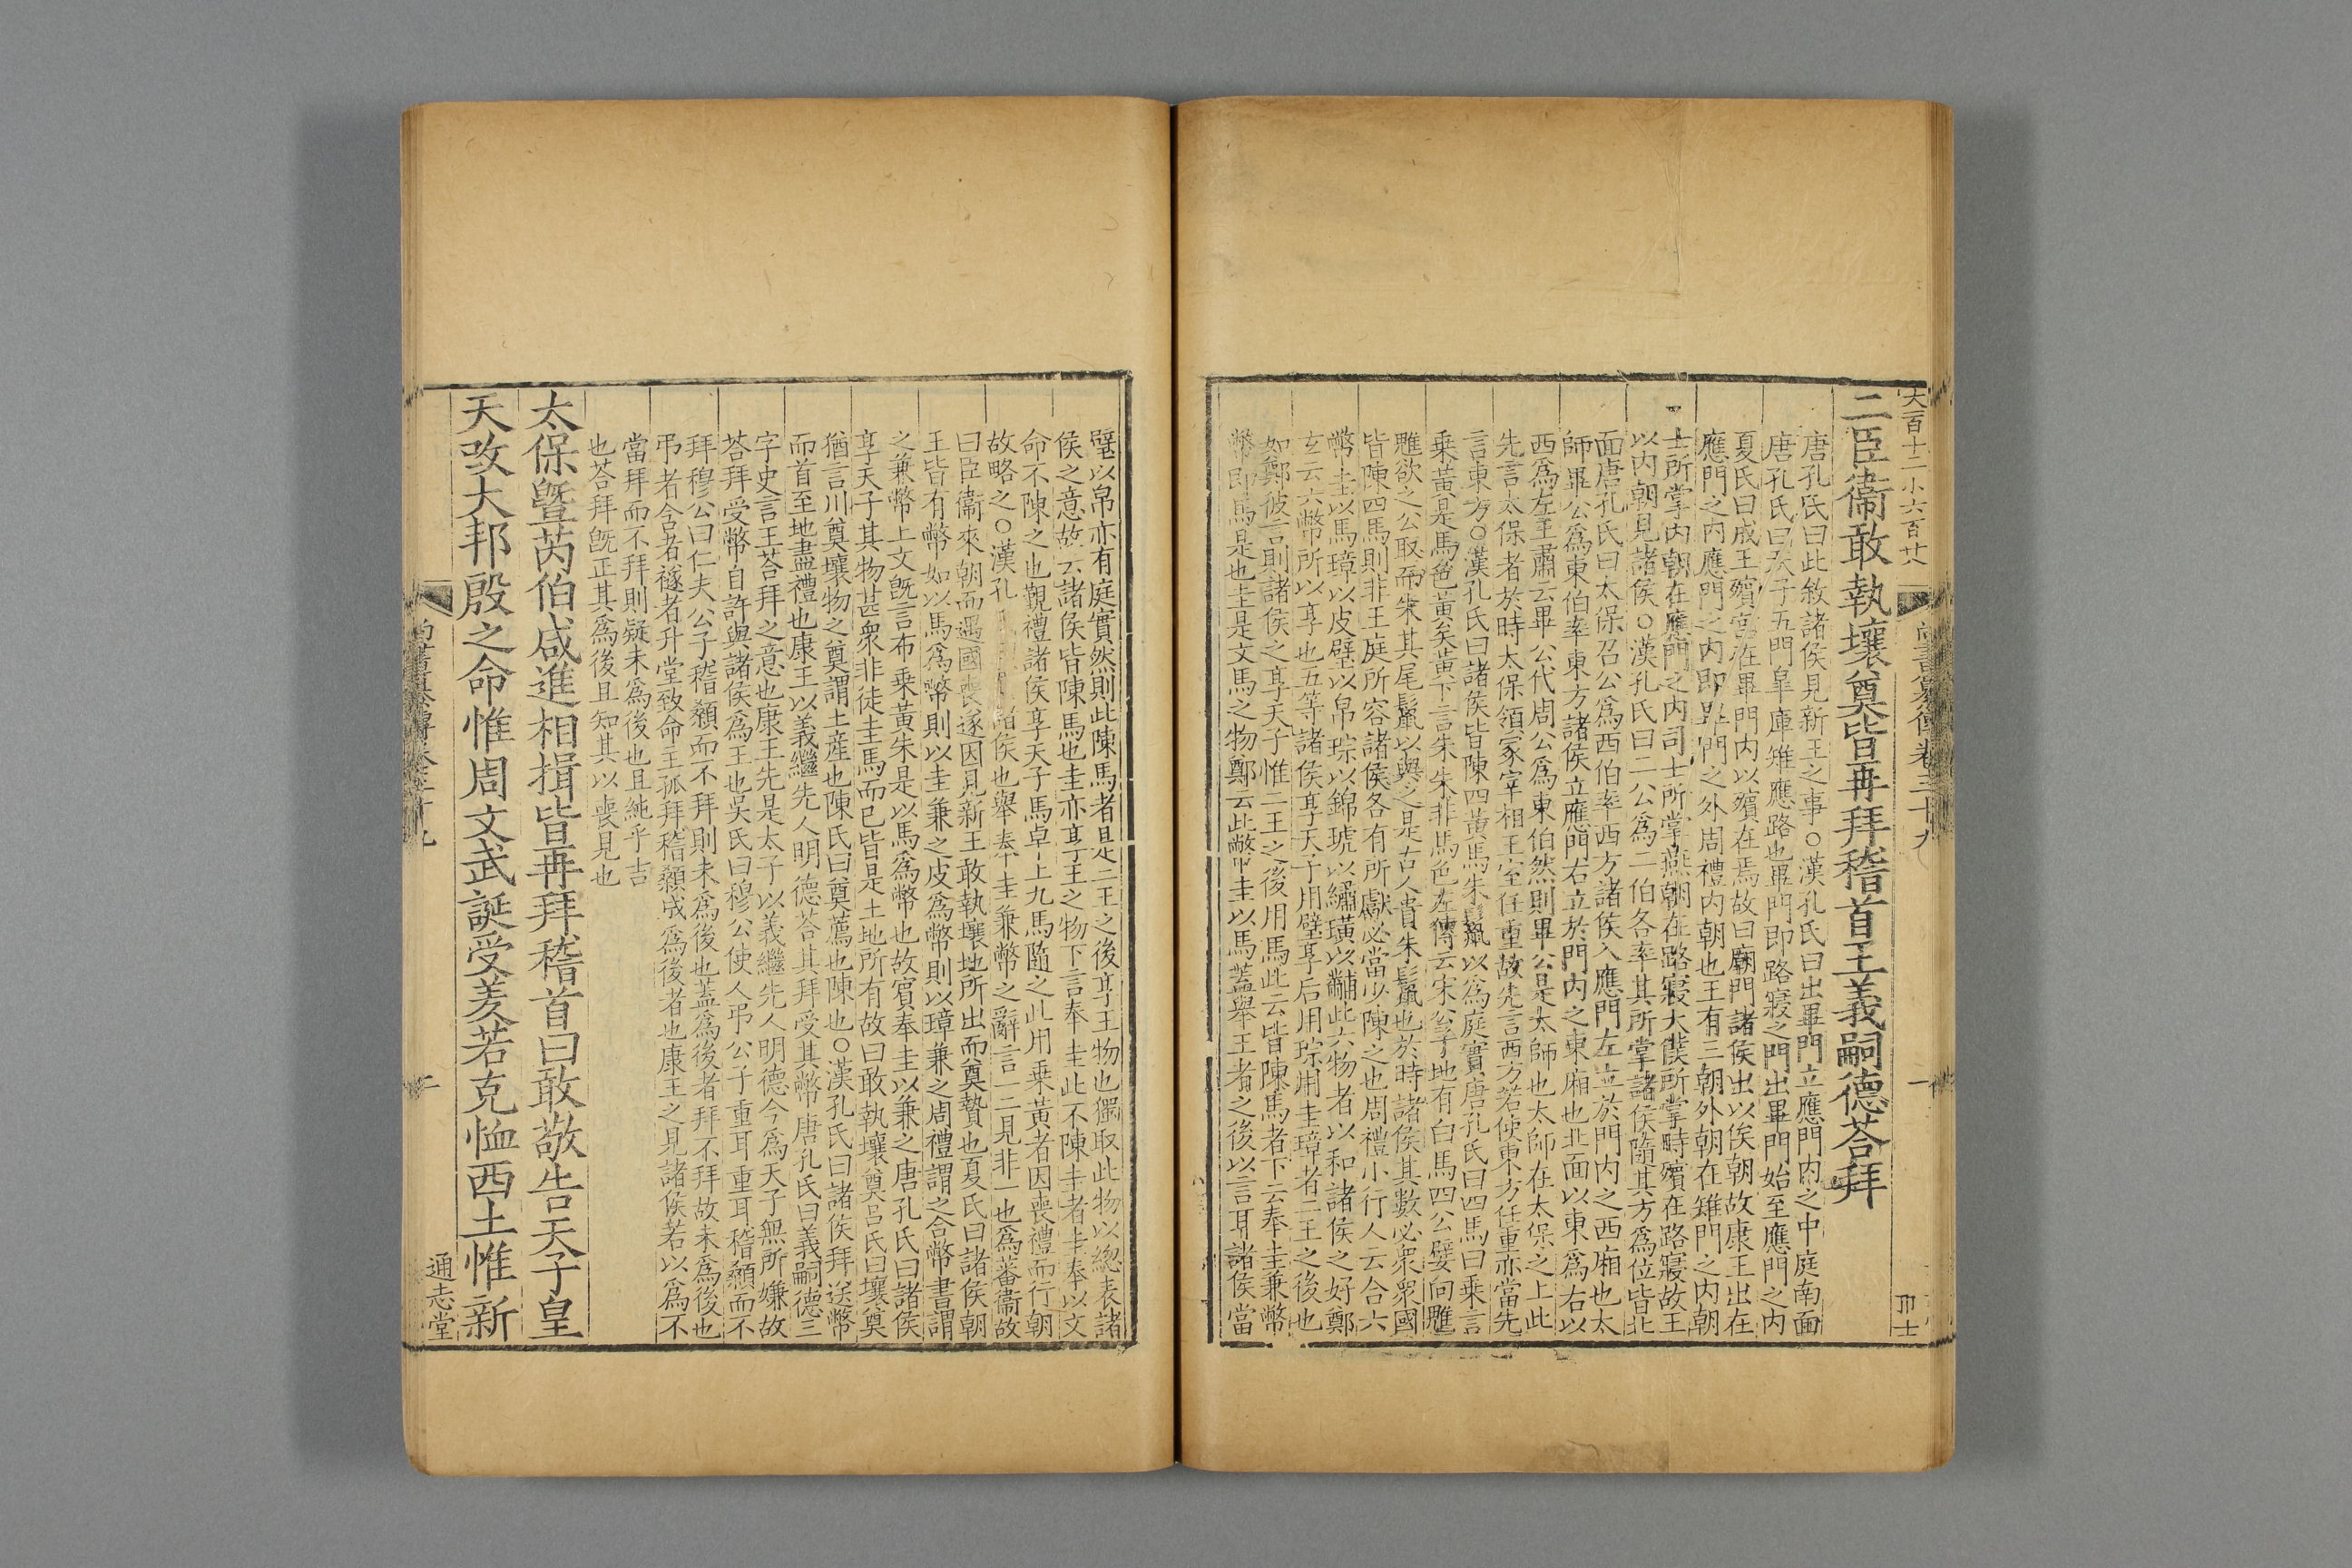 大百十二小六百廿
尚書纂傳卷三十九
一
二臣衞敢執壤奠皆再拜稽首王義嗣德荅拜
唐孔氏曰此敘諸侯見新王之事○漢孔氏曰出畢門立應門内之中庭南面
唐孔氏曰天子五門皐庫雉應路也畢門即路寢之門出畢門始至應門之内
夏氏曰成王殯宮在畢門内以殯在焉故曰廟門諸侯出以俟朝故康王出在
應門之内應門之内即畢門之外周禮内朝也王有三朝外朝在雉門之内朝
士所掌内朝在應門之内司士所掌燕朝在路寢大僕所掌時殯在路寢故王
以内朝見諸侯○漢孔氏曰二公爲二伯各率其所掌諸侯隨其方爲位皆北
面唐孔氏曰太保召公爲西伯率西方諸侯入應門左立於門内之西廂也太
師畢公爲東伯率東方諸侯立應門右立於門内之東廂也北面以東爲右以
西爲左王肅云畢公代周公爲東伯然則畢公是太師也太師在太保之上此
先言太保者於時太保領冢宰相王室任重故先言西方若使東方任重亦當先
言東方○漢孔氏曰諸侯皆陳四黄馬朱鬛以爲庭實唐孔氏曰四馬曰乗言
乗黄是馬色黄矣黄下言朱朱非馬色左傳云宋公子地有白馬四公嬖向魋
魋欲之公取而朱其尾鬛以與之是古人貴朱鬛也於時諸侯其數必衆衆國
皆陳四馬則非王庭所容諸侯各有所獻必當少陳之也周禮小行人云合六
幣圭以馬璋以皮璧以帛琮以錦琥以繡璜以黼此六物者以和諸侯之好鄭
玄云六幣所以享也五等諸侯享天子用璧享后用琮用圭璋者二王之後也
如鄭彼言則諸侯之享天子惟二王之後用馬此云皆陳馬者下云奉圭兼幣
幣即馬是也圭是文馬之物鄭云此幣圭以馬蓋舉王者之後以言耳諸侯當
璧以帛亦有庭實然則此陳馬者是二王之後享王物也獨取此物以總表諸
侯之意故云諸侯皆陳馬也圭亦享王之物下言奉圭此不陳圭者圭奉以文
命不陳之也覲禮諸侯享天子馬卓上九馬隨之此用乗黄者因喪禮而行朝
故略之○漢孔 諸侯也舉奉圭兼幣之辭言一二見非一也爲蕃衞故
曰臣衞來朝而遇國喪遂因見新王敢執壤地所出而奠贄也夏氏曰諸侯朝
王皆有幣如以馬爲幣則以圭兼之皮爲幣則以璋兼之周禮謂之合幣書謂
之兼幣上文旣言布乗黄朱是以馬爲幣也故賓奉圭以兼之唐孔氏曰諸侯
享天子其物甚衆非徒圭馬而已皆是土地所有故曰敢執壤奠吕氏曰壤奠
猶言川奠壤物之奠謂土産也陳氏曰奠薦也陳也○漢孔氏曰諸侯拜送幣
而首至地盡禮也康王以義繼先人明德荅其拜受其幣唐孔氏曰義嗣德三
字史言王荅拜之意也康王先是太子以義繼先人明德今爲天子無所嫌故
荅拜受幣自許與諸侯爲王也吳氏曰穆公使人弔公子重耳重耳稽顙而不
拜穆公曰仁夫公子稽顙而不拜則未爲後也蓋爲後者拜不拜故未爲後也
弔者含者襚者升堂致命主孤拜稽顙成爲後者也康王之見諸侯若以爲不
當拜而不拜則疑未爲後也且純乎吉
也荅拜旣正其爲後且知其以喪見也
太保曁芮伯咸進相揖皆再拜稽首曰敢敬告天子皇
天改大邦殷之命惟周文武誕受羑若克恤西土惟新
尚書纂傳卷三十九
二
通志堂